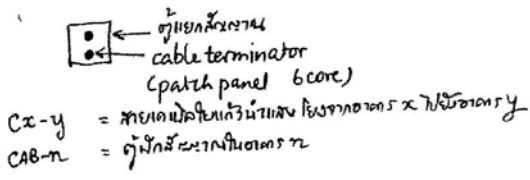 ตู้แยกสัญญาณ
cable terminator
(patch panel 6 core)
Cx-y = สายเคเบิลใยแก้วนำแสง โยงจากอาคาร x ไปยังอาคาร y
CAB-n = ตู้พักสัญญาณในอาคาร n